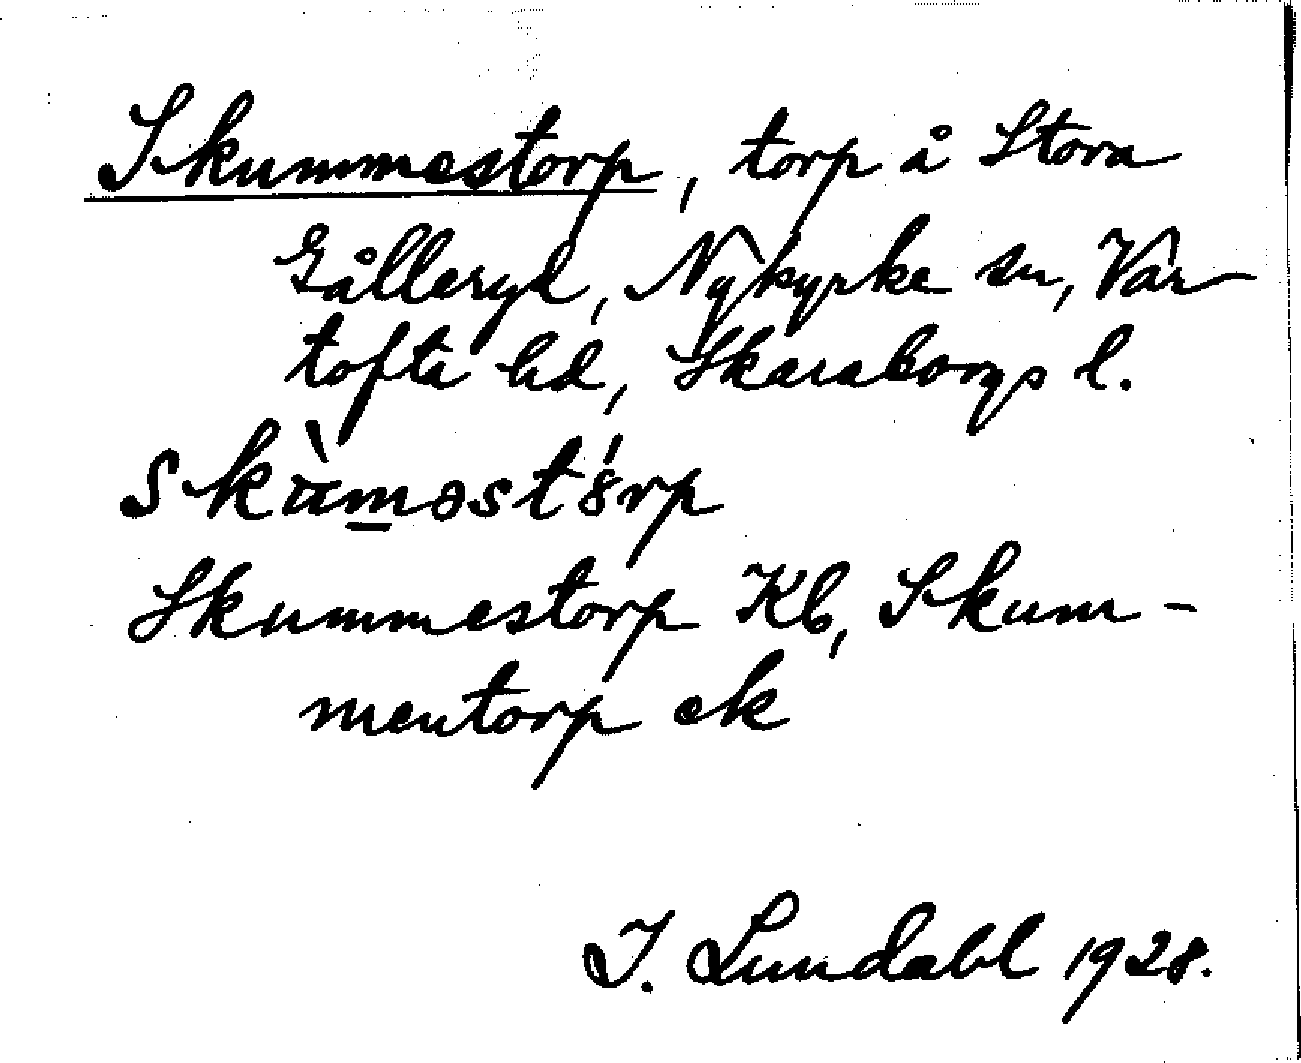 Skummestorp, torp å Stora
Gålleryd, Nykyrke sn, Var-
tofta hd, Skaraborgs l.
Skummestorp Kb, Skum-
mentorp ek
I. Lundahl 1928.